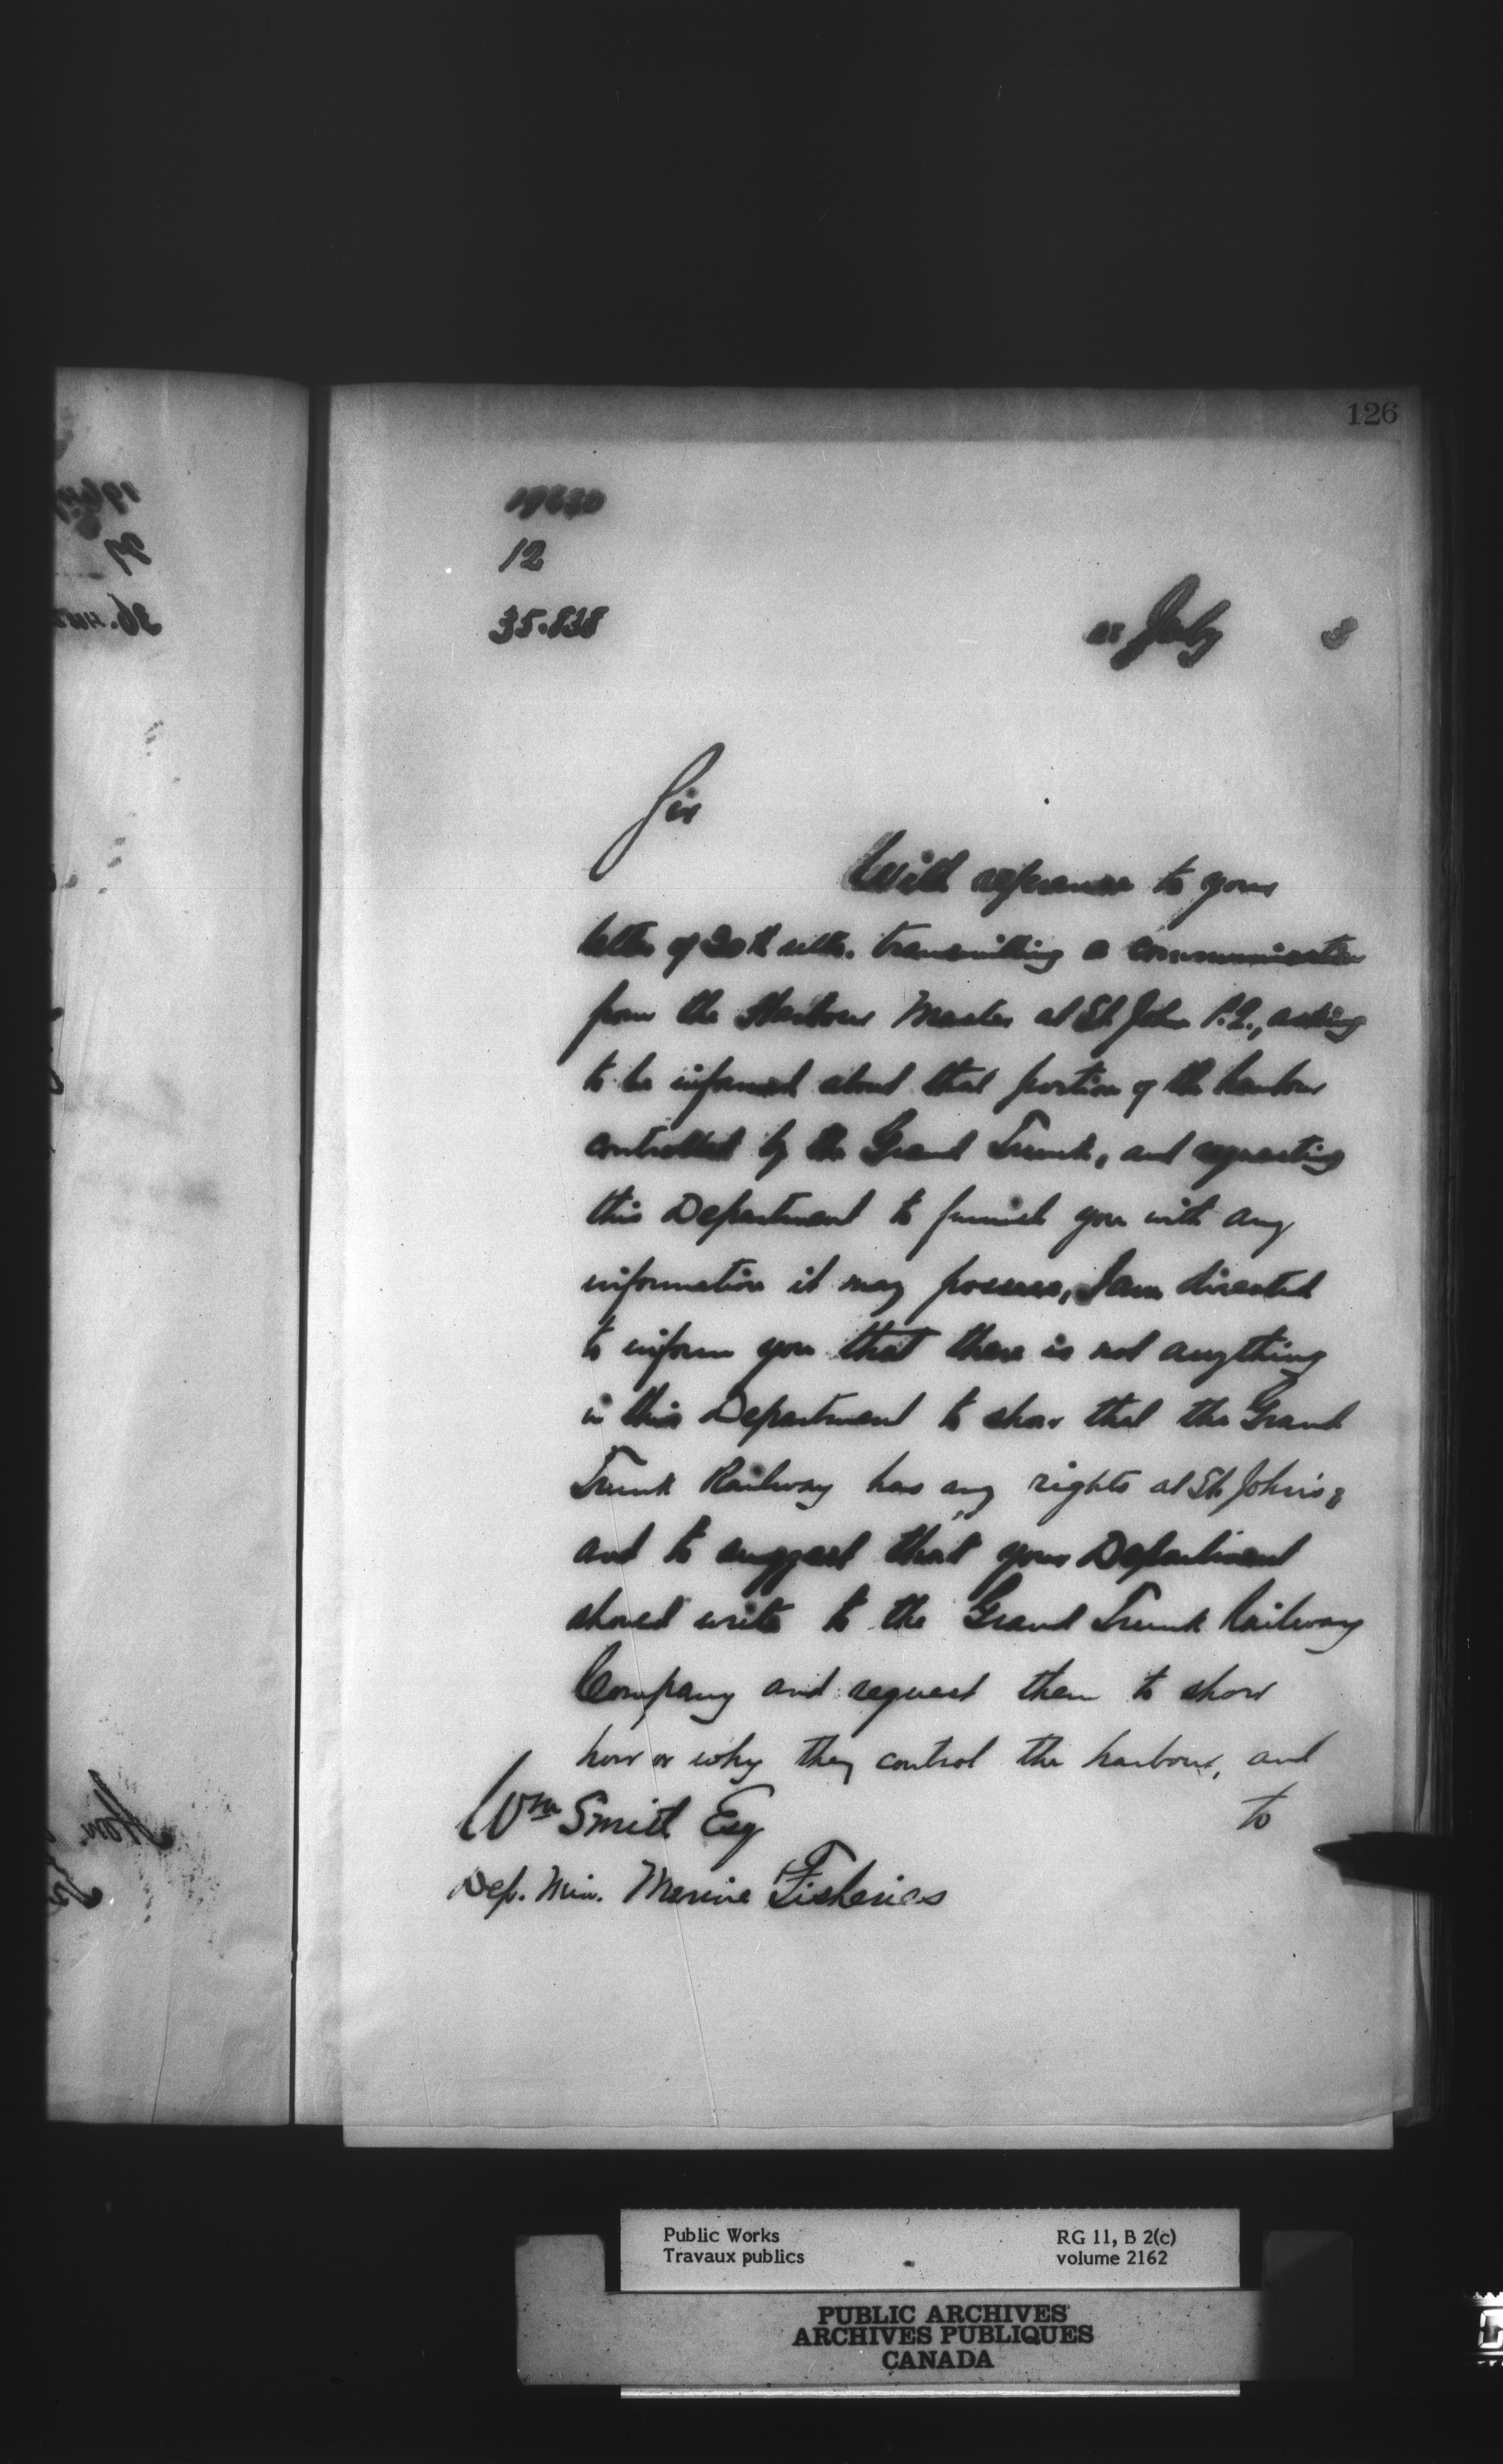 126
12
35.838
July 3
Sir
With reference to your
letter of 30th ulto. transmitting a communication
from the Harbour Master at St. John P.Q., asking
to be informed about that portion of the harbour
controlled by the Grand Trunk, and requesting
this Department to furnish you with any
information it may possess, I am directed
to inform you that there is not anything
in this Department to show that the Grand
Trunk Railway has any rights at St. John's;
and to suggest that your Department
should write to the Grand Trunk Railway
Company and request them to show
how or why they control the harbour, and
to
Wm Smith Esq
Dep. Min. Marine Fisheries
Public Works
Travaux publics
RG 11, B 2(c)
volume 2162
PUBLIC ARCHIVES
ARCHIVES PUBLIQUES
CANADA